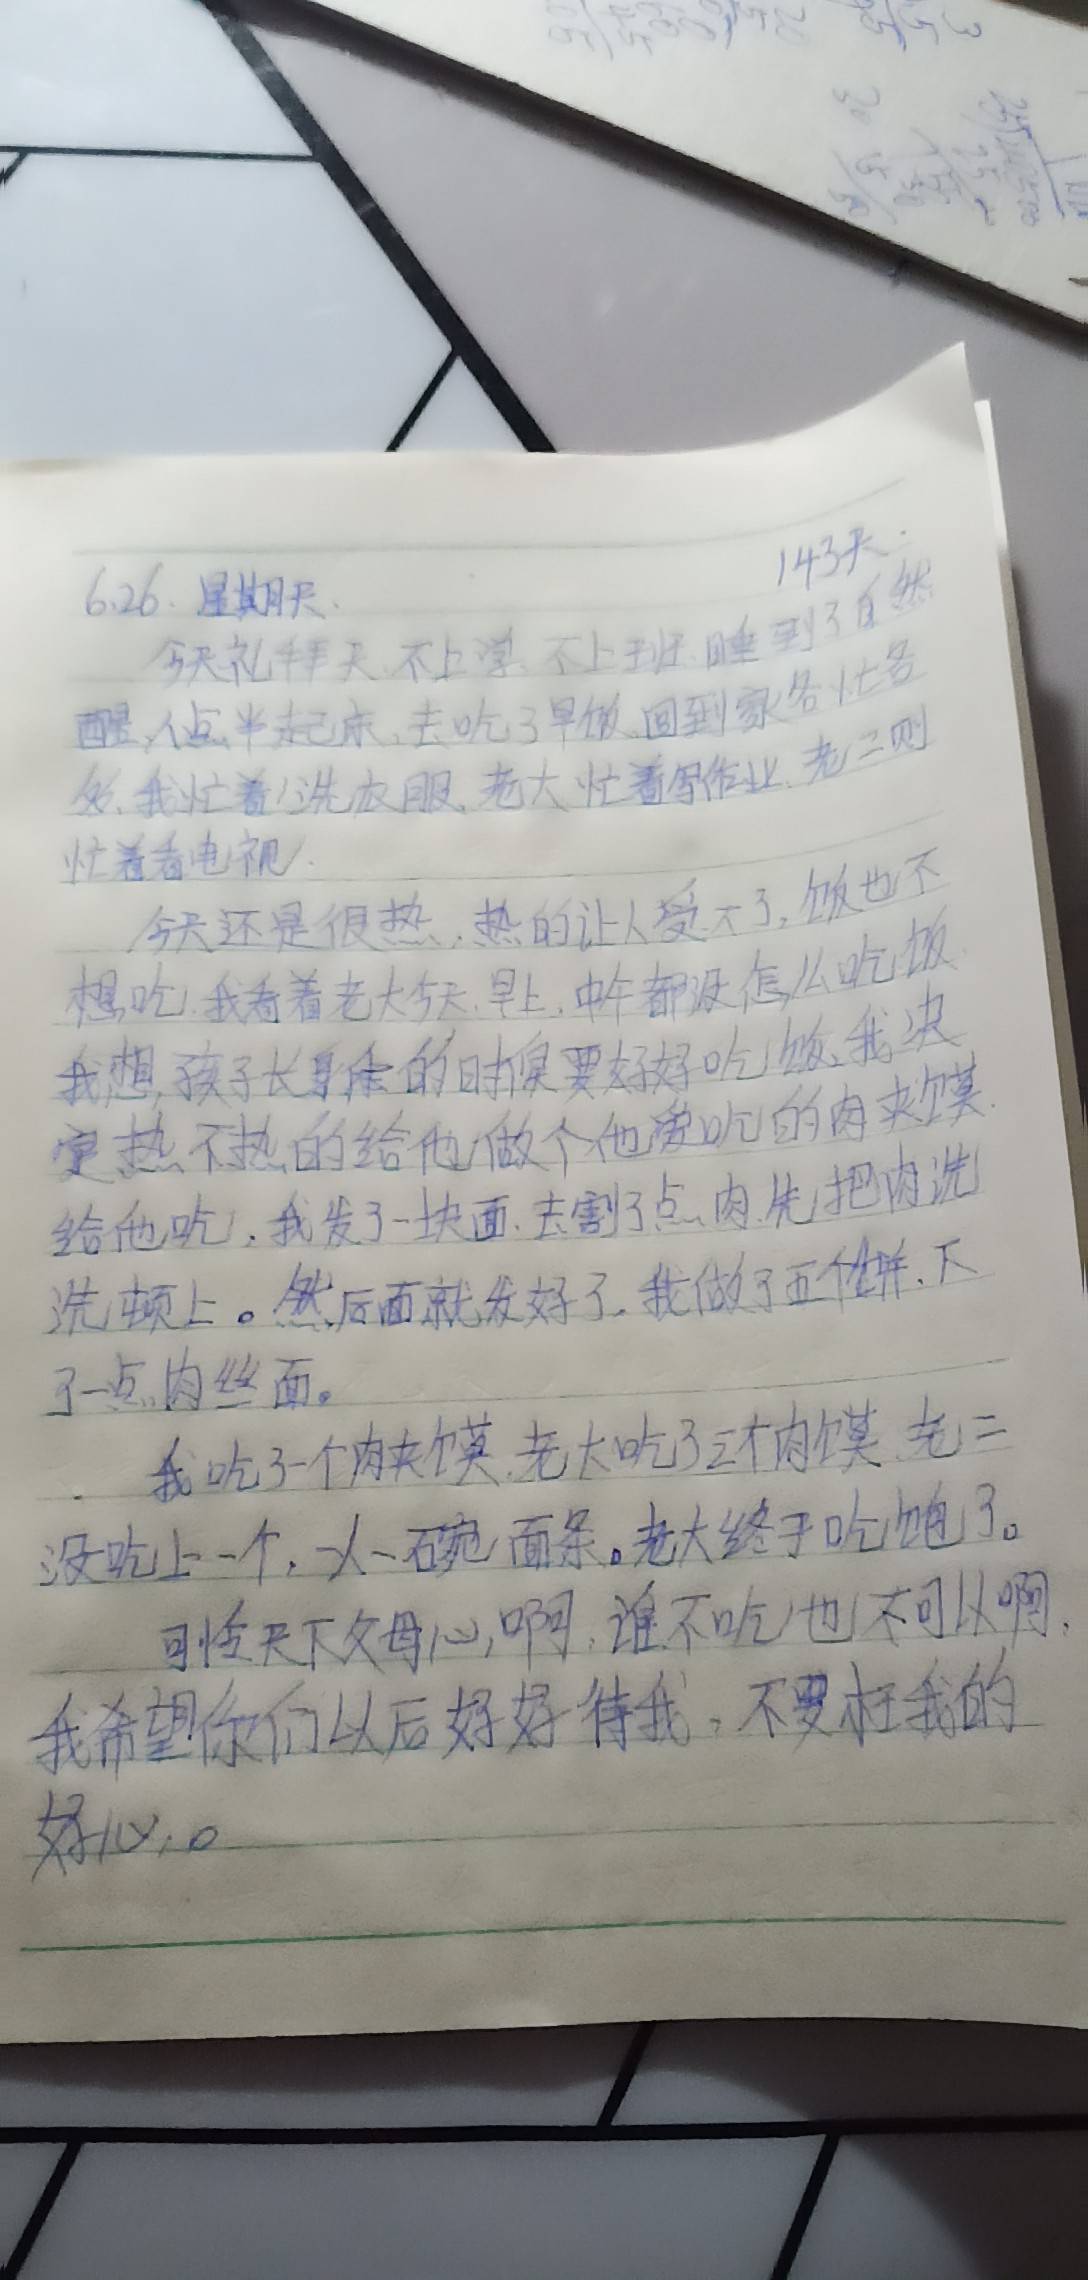 143天.
6.26. 星期天.
今天礼拜天.不上学.不上班.睡到了自然
醒,八点半起床,去吃了早饭.回到家各忙各
的.我忙着洗衣服.老大忙着写作业.老二则
忙着看电视.
今天还是很热,热的让人受不了,饭也不
想吃.我看着老大今天.早上,中午都没怎么吃饭.
我想,孩子长身体的时候要好好吃饭,我决
定热不热的给他做个他爱吃的肉夹馍.
给他吃,我发了一块面.去割了点肉.先把肉洗
洗顿上。然后面就发好了.我做了五个饼.下
了一点肉丝面。
我吃了一个肉夹馍.老大吃了三个肉馍.老二
没吃上一个,一人一碗面条。老大终于吃饱了。
可怜天下父母心,啊,谁不吃也不可以啊,
我希望你们以后好好待我,不要枉我的
好心。